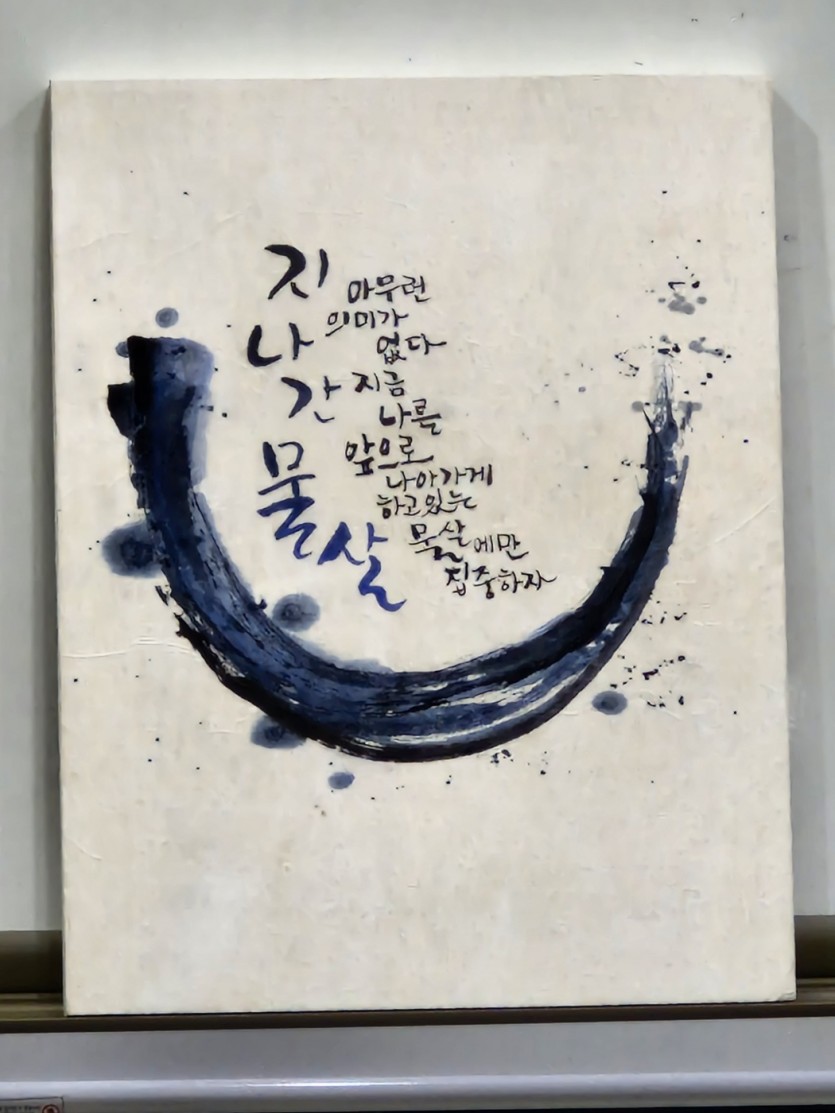 지나간물살
아무런
의미가
없다
지금
나를
앞으로
나아가게
하고있는
물살에만
집중하자